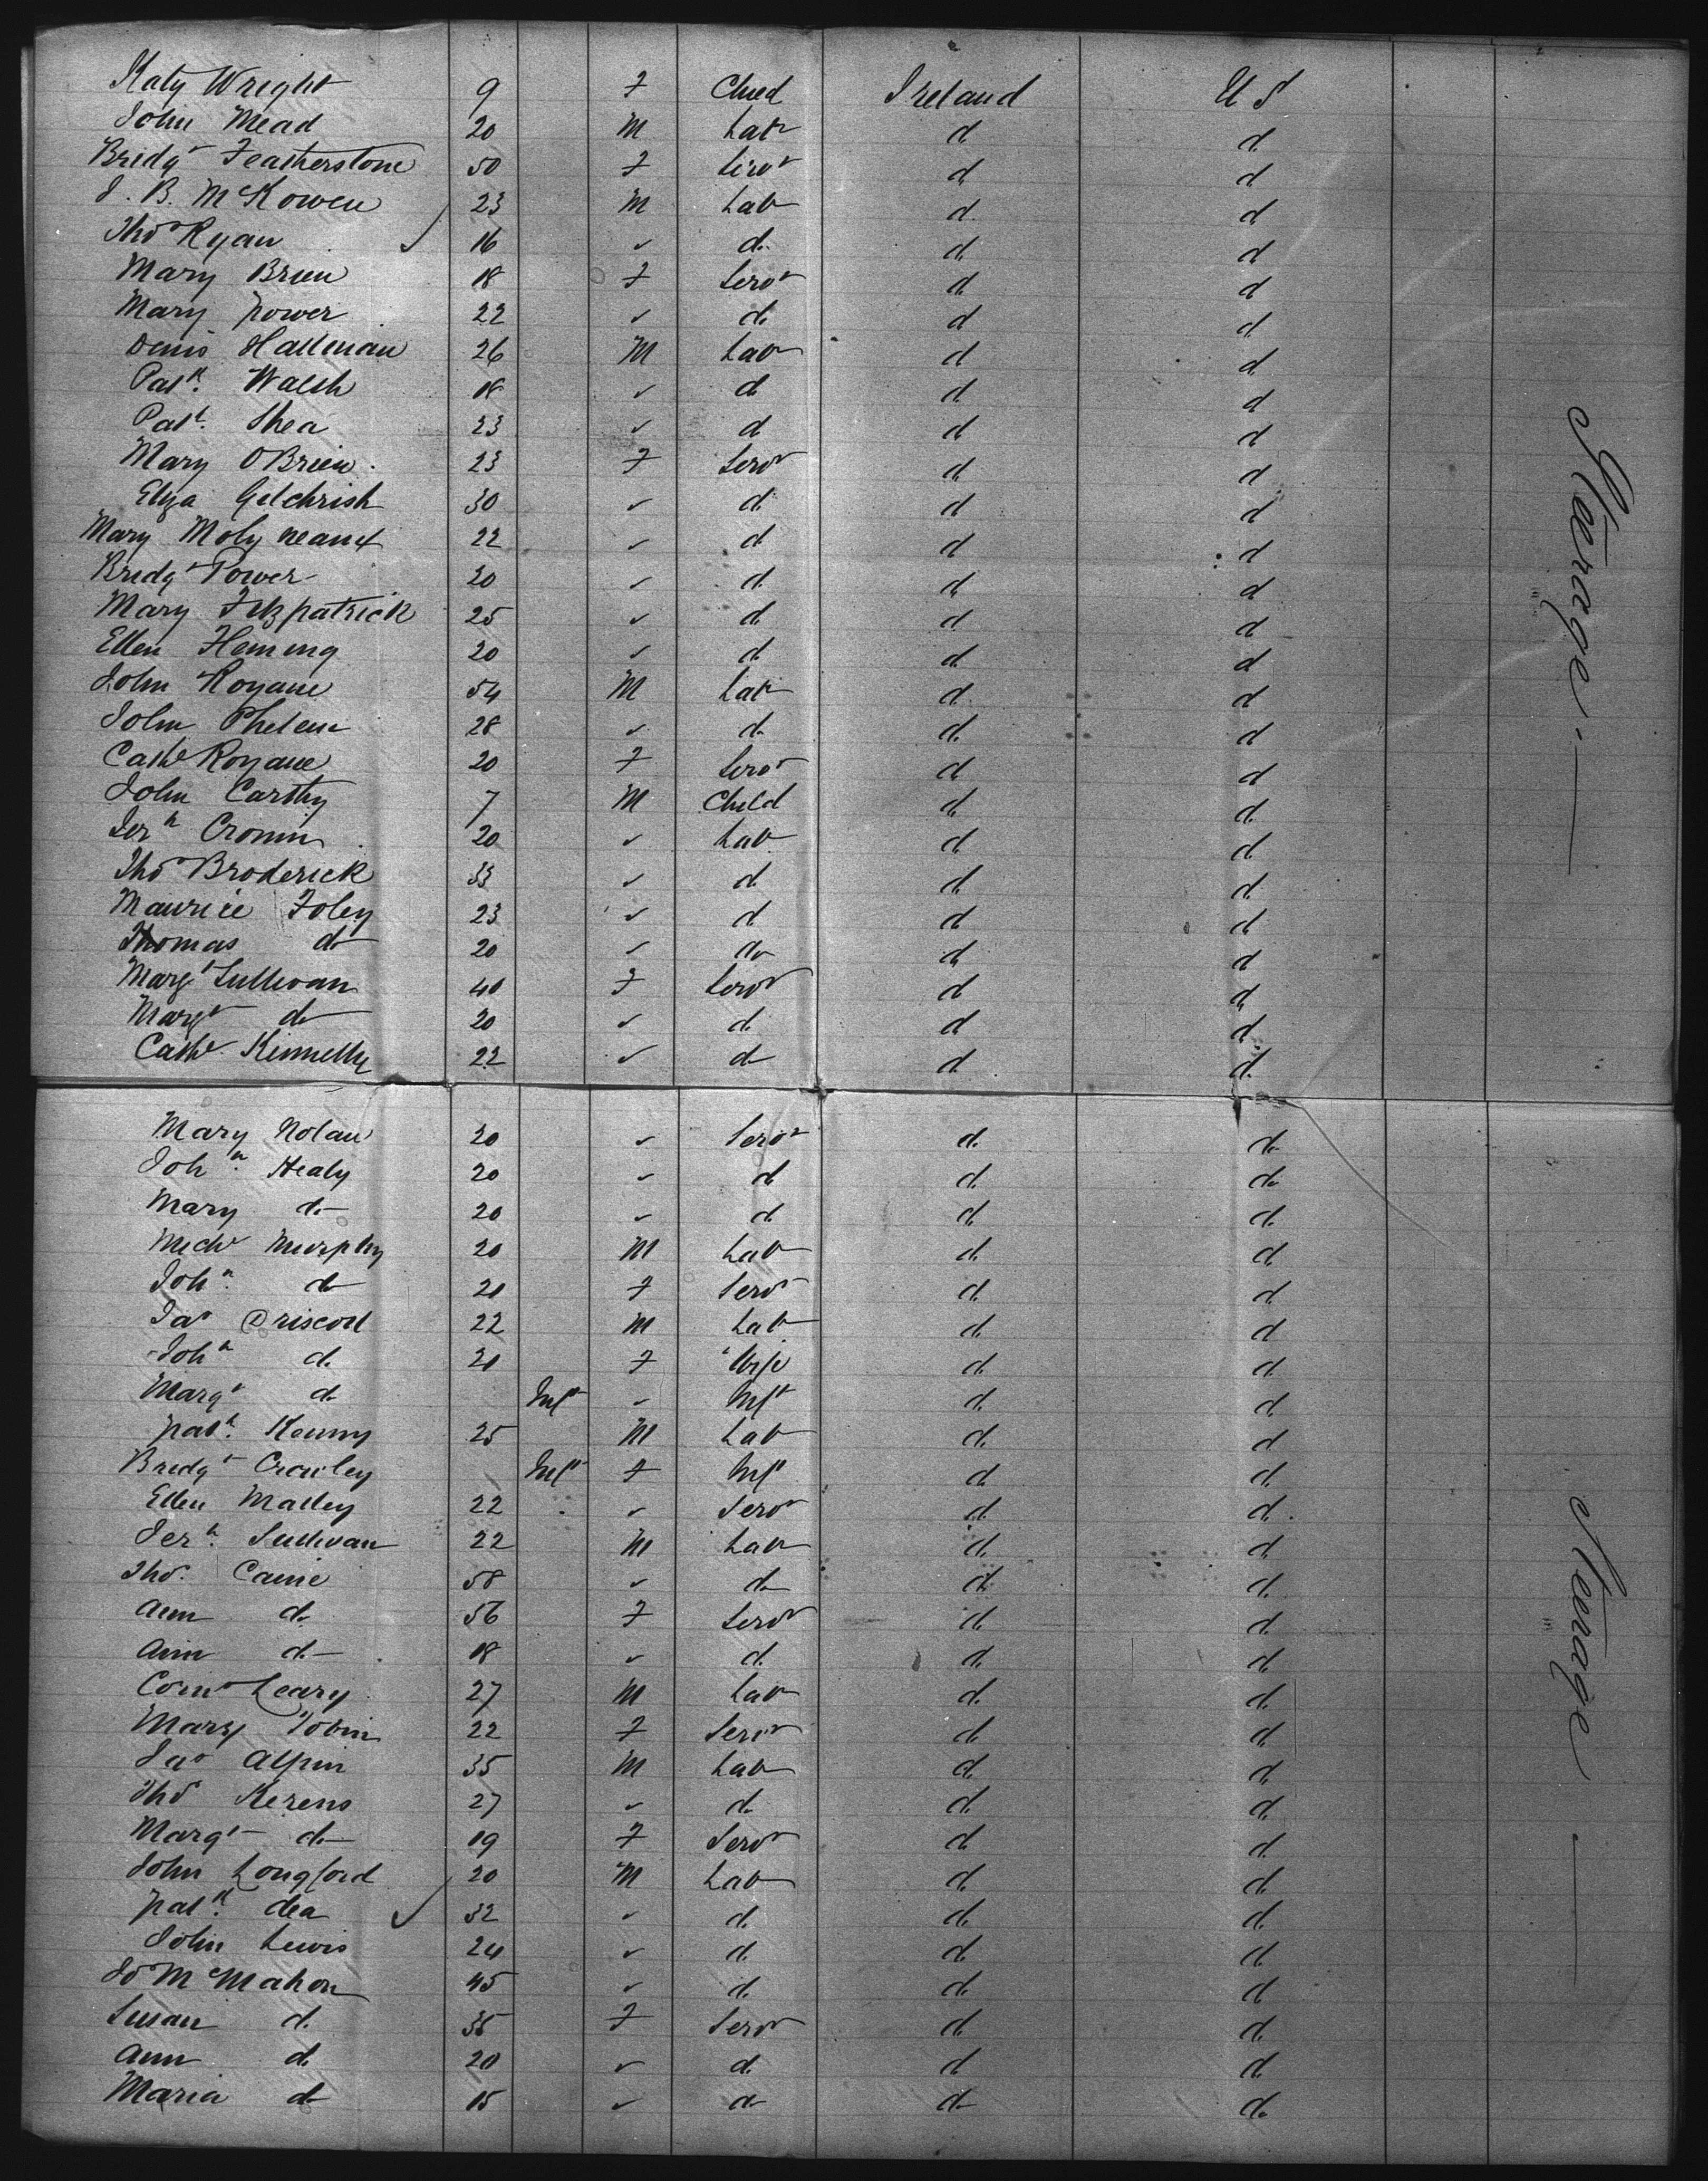 Katy Wright 9 F Child Ireland U S
John Mead 20 M Labr d d
Bridgt Featherstone 50 F Servt d d
J. B. McKowen 23 M Labr d d
Thos Ryan 16 ✓ d d d
Mary Brien 18 F Servt d d
Mary Power 22 ✓ d d d
Denis Hallenan 26 M Labr d d
Patk. Walsh 18 ✓ d d d
Patk. Shea 23 ✓ d d d
Mary OBrien 23 F Servt d d
Eliza Gilchrish 30 ✓ d d d
Mary Molyneaux 22 ✓ d d d
Bridgt Power 20 ✓ d d d
Mary Fitzpatrick 25 ✓ d d d
Ellen Fleming 20 ✓ d d d
John Ronane 54 M Labr d d
John Phelan 28 ✓ d d d
Cathe Ronane 20 F Servt d d
John Carthy 7 M Child d d
Jerh Cronin 20 ✓ Labr d d
Thos Broderick 33 ✓ d d d
Maurice Foley 23 ✓ d d d
Thomas do 20 ✓ do d d
Margt Sullivan 40 F Servt d d
Margt do 20 ✓ d d d
Cathe Kinnelly 22 ✓ d d d
Steerage
Mary Nolan 20 ✓ Servt d d
Joha Healy 20 ✓ d d d
Mary d 20 ✓ d d d
Michl Murphy 20 M Labr d d
Joha. d 20 F Servt d d
Jas Driscoll 22 M Labr d d
Joha d 20 F Wife d d
Margt d Inft ✓ Inft d d
Patk. Kenny 25 M Labr d d
Bridgt Crowley Inft F Inft d d
Ellen Malley 22 ✓ Servt d d
Jerh. Sullivan 22 M Labr d d
Thos. Caine 58 ✓ d d d
Ann d 56 F Servt d d
Ann d 18 ✓ d d d
Corns Leary 27 M Labr d d
Mary Tobin 22 F Servt d d
Jas Alpin 35 M Labr d d
Thos Kerens 27 ✓ d d d
Margt d 19 F Servt d d
John Longford 20 M Labr d d
Patk. dea 32 ✓ d d d
John Lewis 24 ✓ d d d
Jo McMahon 45 ✓ d d d
Susan d 35 F Servt d d
Ann d 20 ✓ d d d
Maria d 15 ✓ d d d
Steerage